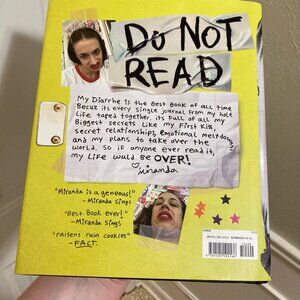 DO NOT
READ
My Diarrhe is the Best Book of all Time
Becuz its every single journal from my hole
Life taped together. its full of all my
Biggest secrets Like my First kiss,
secret relationships, Emotional meltdowns,
and my plans to take over the
world. So if anyone ever read it,
my Life wuld be OVER!
miranda
"Miranda is a geneous!"
-Miranda Sings
"Best Book ever!"
-Miranda Sings
"raisens ruin cookies"
-FACT.